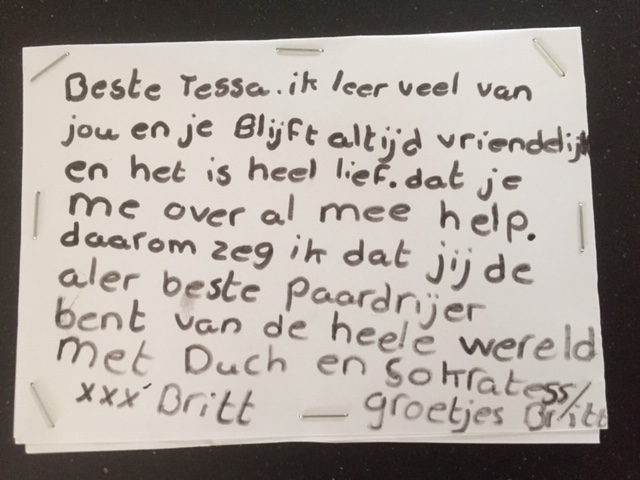 Beste Tessa. ik leer veel van
jou en je Blijft altijd vrienddelijk
en het is heel lief. dat je
me over al mee help.
daarom zeg ik dat jij de
aler beste paardrijer
bent van de heele wereld
met Duch en Sokratess/
xxx Britt groetjes Britt